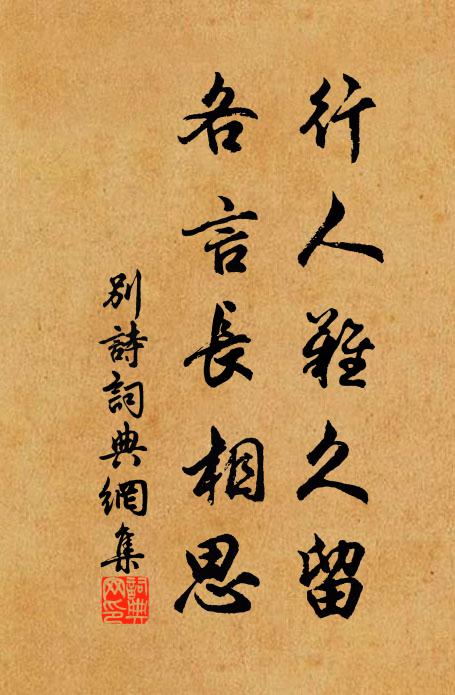 行人難久留
各言長相思
別詩詞典網集
詞典
网印